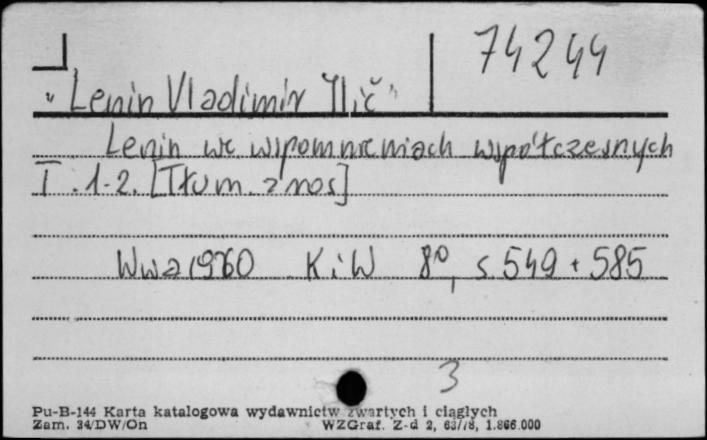 74244
"Lenin Vladimir Ilič"
Lenin we wspomnieniach współczesnych
T. 1-2. [Tłum. z ros]
Wwa 1960 KiW 8°, s. 549 + 585
3
Pu-B-144 Karta katalogowa wydawnictw zwartych i ciągłych
Zam. 34/DW/On WZGraf. Z-d 2, 63/78, 1.866.000